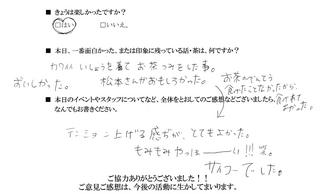 ■ きょうは楽しかったですか?
□はい □いいえ。
■ 本日、一番面白かった、または印象に残っている話・茶は、何ですか?
カワイイいしょうを着てお茶つみをした事。
おいしかった。 松本さんがおもしろかった。
お茶のてんぷら
食べたことなかったから、
食べれて
よかった。
■ 本日のイベントやスタッフについてなど、全体をとおしてのご感想などございましたら、
なんでもお書きください。
テンション上げる感じが、とてもよかった。
もみもみやっほーーい!!!笑。
サイコーでした。
ご協力ありがとうございました!!
ご意見ご感想は、今後の活動に生かしてまいります。